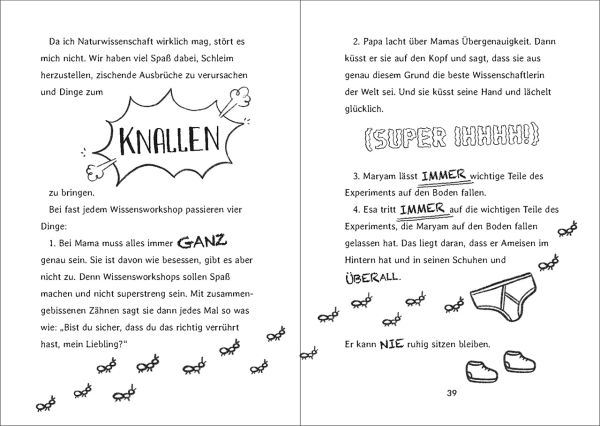 Da ich Naturwissenschaft wirklich mag, stört es
mich nicht. Wir haben viel Spaß dabei, Schleim
herzustellen, zischende Ausbrüche zu verursachen
und Dinge zum
KNALLEN
zu bringen.
Bei fast jedem Wissensworkshop passieren vier
Dinge:
1. Bei Mama muss alles immer GANZ
genau sein. Sie ist davon wie besessen, gibt es aber
nicht zu. Denn Wissensworkshops sollen Spaß
machen und nicht superstreng sein. Mit zusammen-
gebissenen Zähnen sagt sie dann jedes Mal so was
wie: „Bist du sicher, dass du das richtig verrührt
hast, mein Liebling?“
2. Papa lacht über Mamas Übergenauigkeit. Dann
küsst er sie auf den Kopf und sagt, dass sie aus
genau diesem Grund die beste Wissenschaftlerin
der Welt sei. Und sie küsst seine Hand und lächelt
glücklich.
(SUPER IHHHH!)
3. Maryam lässt IMMER wichtige Teile des
Experiments auf den Boden fallen.
4. Esa tritt IMMER auf die wichtigen Teile des
Experiments, die Maryam auf den Boden fallen
gelassen hat. Das liegt daran, dass er Ameisen im
Hintern hat und in seinen Schuhen und
ÜBERALL.
Er kann NIE ruhig sitzen bleiben.
39